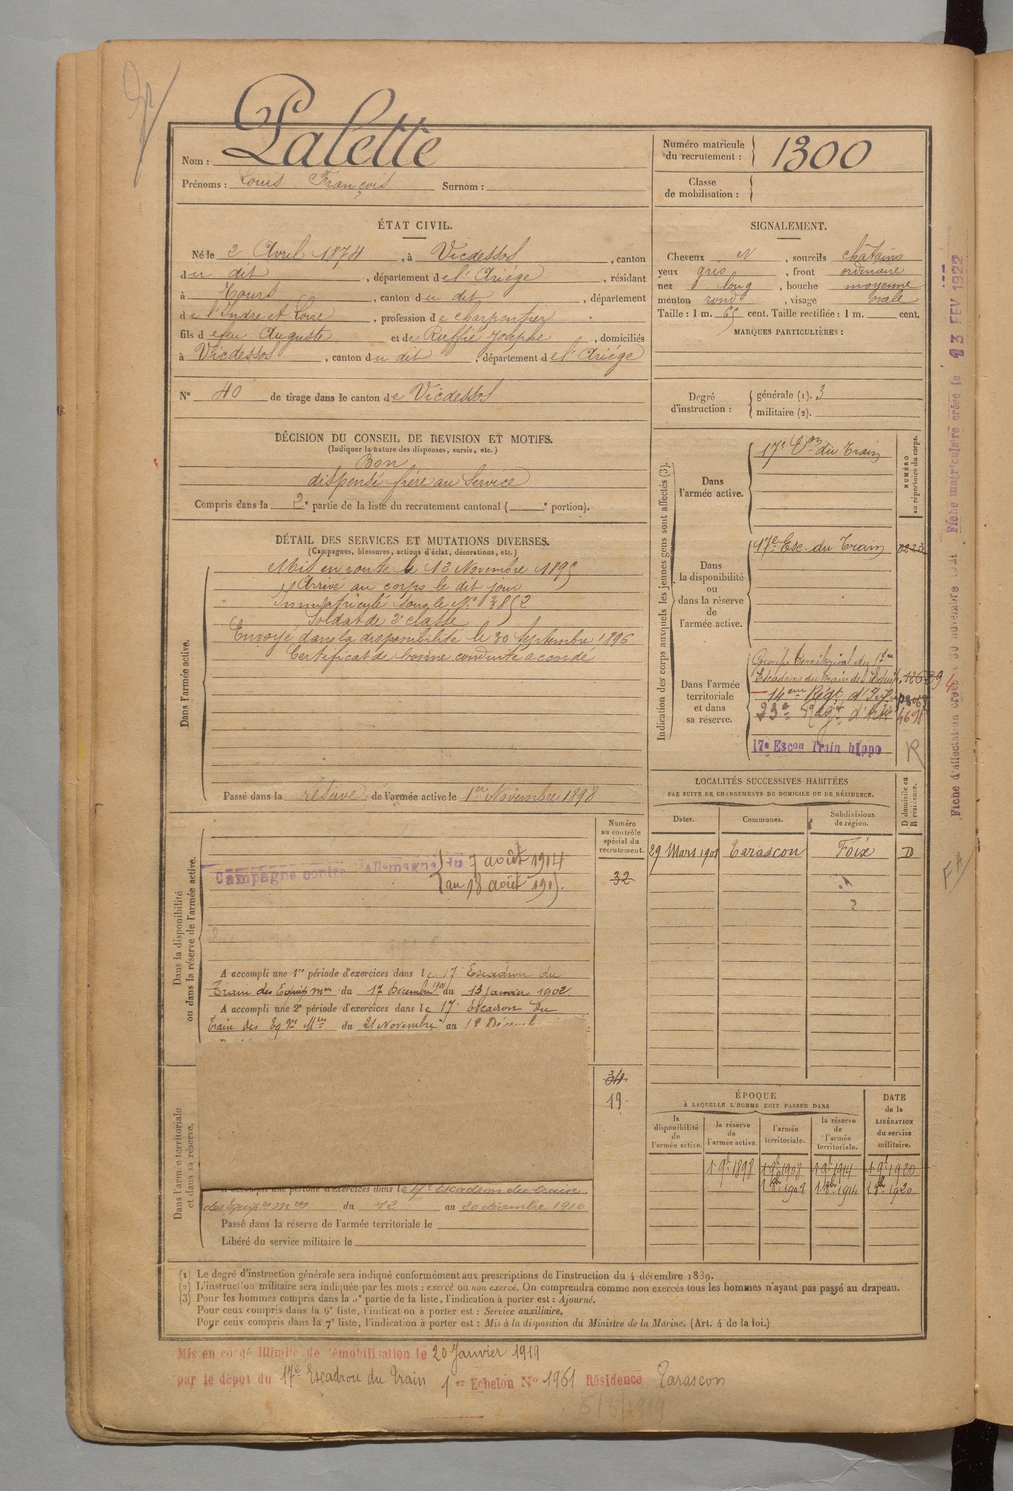 Nom : Palette
Prénoms : Louis François Surnom :
Numéro matricule du recrutement : 1300
Classe de mobilisation :
ÉTAT CIVIL.
Né le 2 Avril 1874, à Vicdessos, canton
du dit, département de l'Ariége, résidant
à Tours, canton du dit, département
de l'Indre et Loire, profession de charpentier
fils de feu Auguste et de Ruffié Josephe, domiciliés
à Vicdessos, canton du dit, département de l'Ariége
N° 40 de tirage dans le canton de Vicdessos
SIGNALEMENT.
Cheveux N, sourcils châtains
yeux gris, front ordinaire
nez long, bouche moyenne
menton rond, visage ovale
Taille : 1 m. 65 cent. Taille rectifiée : 1 m. cent.
MARQUES PARTICULIÈRES :
Degré d'instruction : générale (1). 3
militaire (2).
DÉCISION DU CONSEIL DE REVISION ET MOTIFS.
(Indiquer la nature des dispenses, sursis, etc.)
Bon
dispensé frère au Service
Compris dans la 2e partie de la liste du recrutement cantonal ( e portion).
DÉTAIL DES SERVICES ET MUTATIONS DIVERSES.
(Campagnes, blessures, actions d'éclat, décorations, etc.)
Dans l'armée active.
Mis en route le 13 Novembre 1895
Arrivé au corps le dit jour
immatriculé sous le N°
Soldat de 2e classe
Envoyé dans la disponibilité le 30 Septembre 1896
Certificat de bonne conduite accordé
Passé dans la réserve de l'armée active le 1er Novembre 1898
Indication des corps auxquels les jeunes gens sont affectés (3).
NUMÉRO au répertoire du corps.
Dans l'armée active.
17e Eson du Train
Dans la disponibilité ou dans la réserve de l'armée active.
17e Esc. du Train
Dans l'armée territoriale et dans sa réserve.
Groupe territorial du 17e
Escadron du Train des Equip.
17e Escon Train hippo
R
LOCALITÉS SUCCESSIVES HABITÉES
PAR SUITE DE CHANGEMENTS DE DOMICILE OU DE RÉSIDENCE.
Dates. Communes. Subdivisions de région. D domicile ou R résidence.
29 Mars 1901 Tarascon Foix D
Dans la disponibilité ou dans la réserve de l'armée active.
Numéro au contrôle spécial du recrutement.
32
Campagne contre l'Allemagne du 7 août 1914
au
A accompli une 1re période d'exercices dans le 17 Escadron du
Train des Equip mres du 17 Décembre 1901 au 13 janvier 1902
A accompli une 2e période d'exercices dans le 17e Escadron du
Train des Eq. Mres du 21 Novembre au 18
Dans l'armée territoriale et dans sa réserve.
34
19
A accompli une période d'exercices dans le 17e escadron du train
des équip. mres du 12 au 20 décembre 1910
Passé dans la réserve de l'armée territoriale le
Libéré du service militaire le
ÉPOQUE
À LAQUELLE L'HOMME DOIT PASSER DANS
la disponibilité de l'armée active. la réserve de l'armée active. l'armée territoriale. la réserve de l'armée territoriale.
DATE de la LIBÉRATION du service militaire.
1 9bre 1898 1 9bre 1908 1 9bre 1914 1 9bre 1920
(1) Le degré d'instruction générale sera indiqué conformément aux prescriptions de l'instruction du 4 décembre 1889.
(2) L'instruction militaire sera indiquée par les mots : exercé ou non exercé. On comprendra comme non exercés tous les hommes n'ayant pas passé au drapeau.
(3) Pour les hommes compris dans la 5e partie de la liste, l'indication à porter est : Ajourné.
Pour ceux compris dans la 6e liste, l'indication à porter est : Service auxiliaire.
Pour ceux compris dans la 7e liste, l'indication à porter est : Mis à la disposition du Ministre de la Marine. (Art. 4 de la loi.)
Mis en congé illimité de démobilisation le 20 Janvier 1919
par le dépôt du 17e Escadron du Train 1er Echelon N° 1961 Résidence Tarascon
Fiche matriculaire créée le 23 FEV 1922